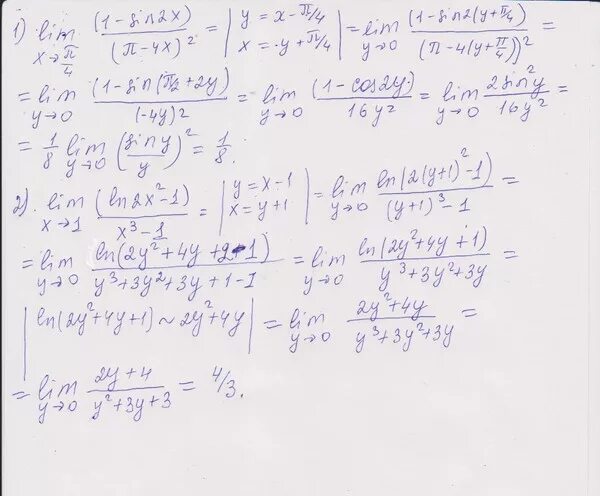 1) lim x→π/4 (1-sin2x)/(π-4x)² = | y = x-π/4 x = y+π/4 | = lim y→0 (1-sin2(y+π/4))/(π-4(y+π/4))² =
= lim y→0 (1-sin(π/2+2y))/(-4y)² = lim y→0 (1-cos2y)/16y² = lim y→0 2sin²y/16y² =
= 1/8 lim y→0 (sin y/y)² = 1/8.
2) lim x→1 (ln2x²-1)/(x³-1) = | y = x-1 x = y+1 | = lim y→0 ln(2(y+1)²-1)/((y+1)³-1) =
= lim y→0 ln(2y²+4y+2-1)/(y³+3y²+3y+1-1) = lim y→0 ln(2y²+4y+1)/(y³+3y²+3y) =
| ln(2y²+4y+1) ~ 2y²+4y | = lim y→0 (2y²+4y)/(y³+3y²+3y) =
= lim y→0 (2y+4)/(y²+3y+3) = 4/3.